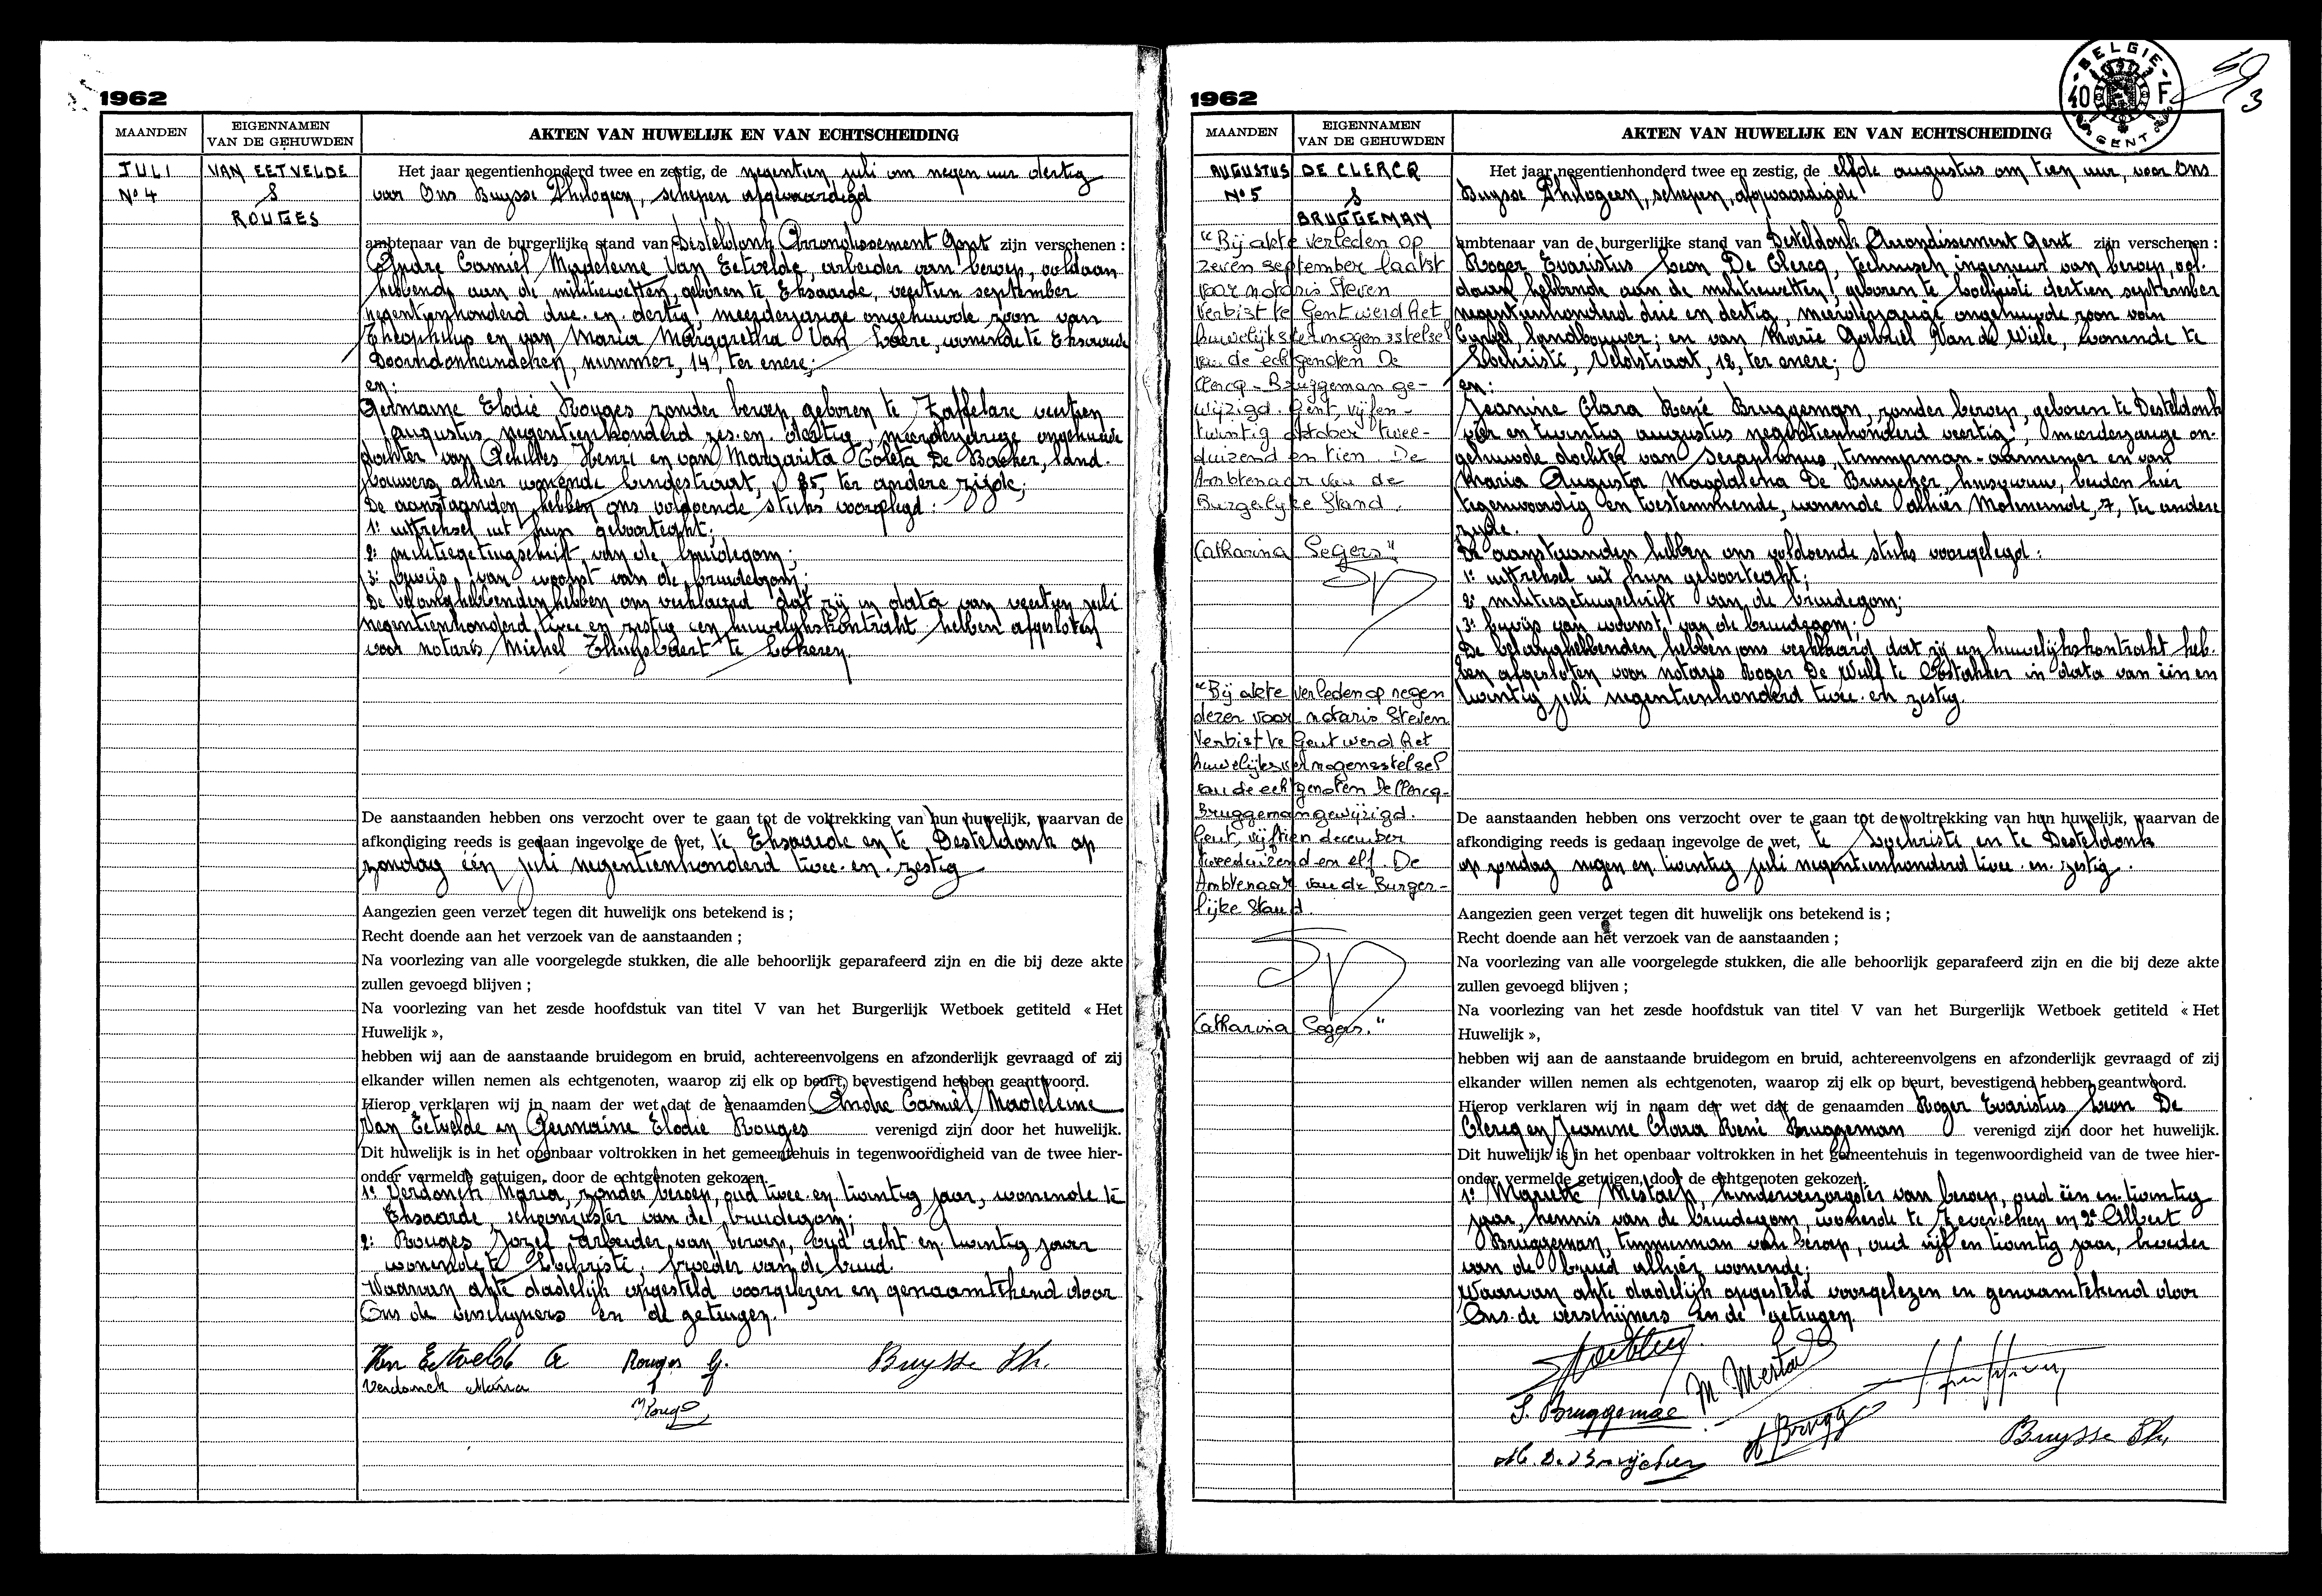 1962
MAANDEN
EIGENNAMEN
VAN DE GEHUWDEN
AKTEN VAN HUWELIJK EN VAN ECHTSCHEIDING
JULI
Nº 4
VAN EETVELDE
&
ROUGES
Het jaar negentienhonderd twee en zestig, de negentien juli om negen uur dertig
voor Ons Buysse Philogeen, schepen afgevaardigd
ambtenaar van de burgerlijke stand van Desteldonk Arrondissement Gent zijn verschenen :
Andre Camiel Madeleine Van Eetvelde, arbeider van beroep, voldaan
hebbende aan de militiewetten, geboren te Eksaarde, veertien september
negentienhonderd drie en dertig, meerderjarige ongehuwde zoon van
Theophilus en van Maria Margaretha Van Laere, wonende te Eksaarde
Doorndonkeindeken, nummer, 14, ter enere;
en:
Germaine Elodie Rouges zonder beroep, geboren te Zaffelare veertien
augustus negentienhonderd zes en dertig, meerderjarige ongehuwde
dochter van Achilles Henri en van Margarita Coleta De Backer, land-
bouwers, alhier wonende Lindestraat, 85, ter andere zijde;
De aanstaanden hebben ons voldoende stuks voorgelegd :
1º uittreksel uit hun geboorteakt;
2º militiegetuigschrift van de bruidegom;
3º bewijs van woonst van de bruidegom;
De belanghebbenden hebben ons verklaard dat zij in data van veertien juli
negentienhonderd twee en zestig een huwelijkskontrakt hebben afgesloten
voor notaris Michel te Lokeren
De aanstaanden hebben ons verzocht over te gaan tot de voltrekking van hun huwelijk, waarvan de
afkondiging reeds is gedaan ingevolge de wet, te Eksaarde en te Desteldonk op
zondag één juli negentienhonderd twee en zestig
Aangezien geen verzet tegen dit huwelijk ons betekend is ;
Recht doende aan het verzoek van de aanstaanden ;
Na voorlezing van alle voorgelegde stukken, die alle behoorlijk geparafeerd zijn en die bij deze akte
zullen gevoegd blijven ;
Na voorlezing van het zesde hoofdstuk van titel V van het Burgerlijk Wetboek getiteld « Het
Huwelijk »,
hebben wij aan de aanstaande bruidegom en bruid, achtereenvolgens en afzonderlijk gevraagd of zij
elkander willen nemen als echtgenoten, waarop zij elk op beurt, bevestigend hebben geantwoord.
Hierop verklaren wij in naam der wet dat de genaamden Andre Camiel Madeleine
Van Eetvelde en Germaine Elodie Rouges verenigd zijn door het huwelijk.
Dit huwelijk is in het openbaar voltrokken in het gemeentehuis in tegenwoordigheid van de twee hier-
onder vermelde getuigen, door de echtgenoten gekozen.
1º Verdonck Maria, zonder beroep, oud twee en twintig jaar, wonende te
Eksaarde, schoonzuster van de bruidegom;
2º Rouges Jozef arbeider van beroep, oud acht en twintig jaar
wonende te Lochristi, broeder van de bruid.
Waarvan akte dadelijk opgesteld voorgelezen en genaamtekend door
Ons de verschijners en de getuigen.
Van Eetvelde A Rouges G. Buysse Ph.
Verdonck Maria
1962
BELGIE
40 F
GENT
MAANDEN
EIGENNAMEN
VAN DE GEHUWDEN
AKTEN VAN HUWELIJK EN VAN ECHTSCHEIDING
AUGUSTUS
Nº 5
DE CLERCQ
&
BRUGGEMAN
"Bij akte verleden op
zeven september laatst
voor notaris Steven
Verbist te Gent werd het
huwelijksvermogensstelsel
van de echtgenoten De
Clercq - Bruggeman ge-
wijzigd. Gent, vijfen-
twintig oktober twee-
duizend en tien. De
Ambtenaar van de
Burgerlijke Stand.
Catharina Segers"
"Bij akte verleden op negen
dezer voor notaris Steven
Verbist te Gent werd het
huwelijksvermogensstelsel
van de echtgenoten De Clercq-
Bruggeman gewijzigd.
Gent, vijftien december
tweeduizend en elf. De
Ambtenaar van de Burger-
lijke Stand.
Catharina Segers."
Het jaar negentienhonderd twee en zestig, de elfde augustus om tien uur, voor Ons
Buysse Philogeen, schepen, afgevaardigde
ambtenaar van de burgerlijke stand van Desteldonk Arrondissement Gent zijn verschenen :
Roger Evaristus Leon De Clercq, technisch ingenieur van beroep, vol-
daan hebbende aan de militiewetten, geboren te Lochristi dertien september
negentienhonderd drie en dertig, meerderjarige ongehuwde zoon van
Cyriel, landbouwer; en van Marie Gabriel Van de Wiele, wonende te
Lochristi, Veldstraat, 12, ter enere;
en:
Jeanine Clara René Bruggeman, zonder beroep, geboren te Desteldonk
vier en twintig augustus negentienhonderd veertig, meerderjarige on-
gehuwde dochter van Seraphinus, timmerman-aannemer en van
Maria Augusta Magdalena De Bruycker, huisvrouw, beiden hier
tegenwoordig en toestemmende, wonende alhier Moleneinde, 7, ter andere
zijde.
De aanstaanden hebben ons voldoende stuks voorgelegd :
1º uittreksel uit hun geboorteakt;
2º militiegetuigschrift van de bruidegom;
3º bewijs van woonst van de bruidegom.
De belanghebbenden hebben ons verklaard dat zij een huwelijkskontrakt heb-
ben afgesloten voor notaris Roger De Wulf te Oostakker in data van één en
twintig juli negentienhonderd twee en zestig.
De aanstaanden hebben ons verzocht over te gaan tot de voltrekking van hun huwelijk, waarvan de
afkondiging reeds is gedaan ingevolge de wet, te Lochristi en te Desteldonk
op zondag negen en twintig juli negentienhonderd twee en zestig.
Aangezien geen verzet tegen dit huwelijk ons betekend is ;
Recht doende aan het verzoek van de aanstaanden ;
Na voorlezing van alle voorgelegde stukken, die alle behoorlijk geparafeerd zijn en die bij deze akte
zullen gevoegd blijven ;
Na voorlezing van het zesde hoofdstuk van titel V van het Burgerlijk Wetboek getiteld « Het
Huwelijk »,
hebben wij aan de aanstaande bruidegom en bruid, achtereenvolgens en afzonderlijk gevraagd of zij
elkander willen nemen als echtgenoten, waarop zij elk op beurt, bevestigend hebben geantwoord.
Hierop verklaren wij in naam der wet dat de genaamden Roger Evaristus Leon De
Clercq en Jeanine Clara René Bruggeman verenigd zijn door het huwelijk.
Dit huwelijk is in het openbaar voltrokken in het gemeentehuis in tegenwoordigheid van de twee hier-
onder vermelde getuigen, door de echtgenoten gekozen.
1º Mariette Mestach, kinderverzorgster van beroep, oud één en twintig
jaar, kennis van de bruidegom, wonende te Zeveneken en 2º Albert
Bruggeman, timmerman van beroep, oud vijf en twintig jaar, broeder
van de bruid alhier wonende;
Waarvan akte dadelijk opgesteld voorgelezen en genaamtekend door
Ons de verschijners en de getuigen.
M. Mestach
S. Bruggeman
Buysse Ph.